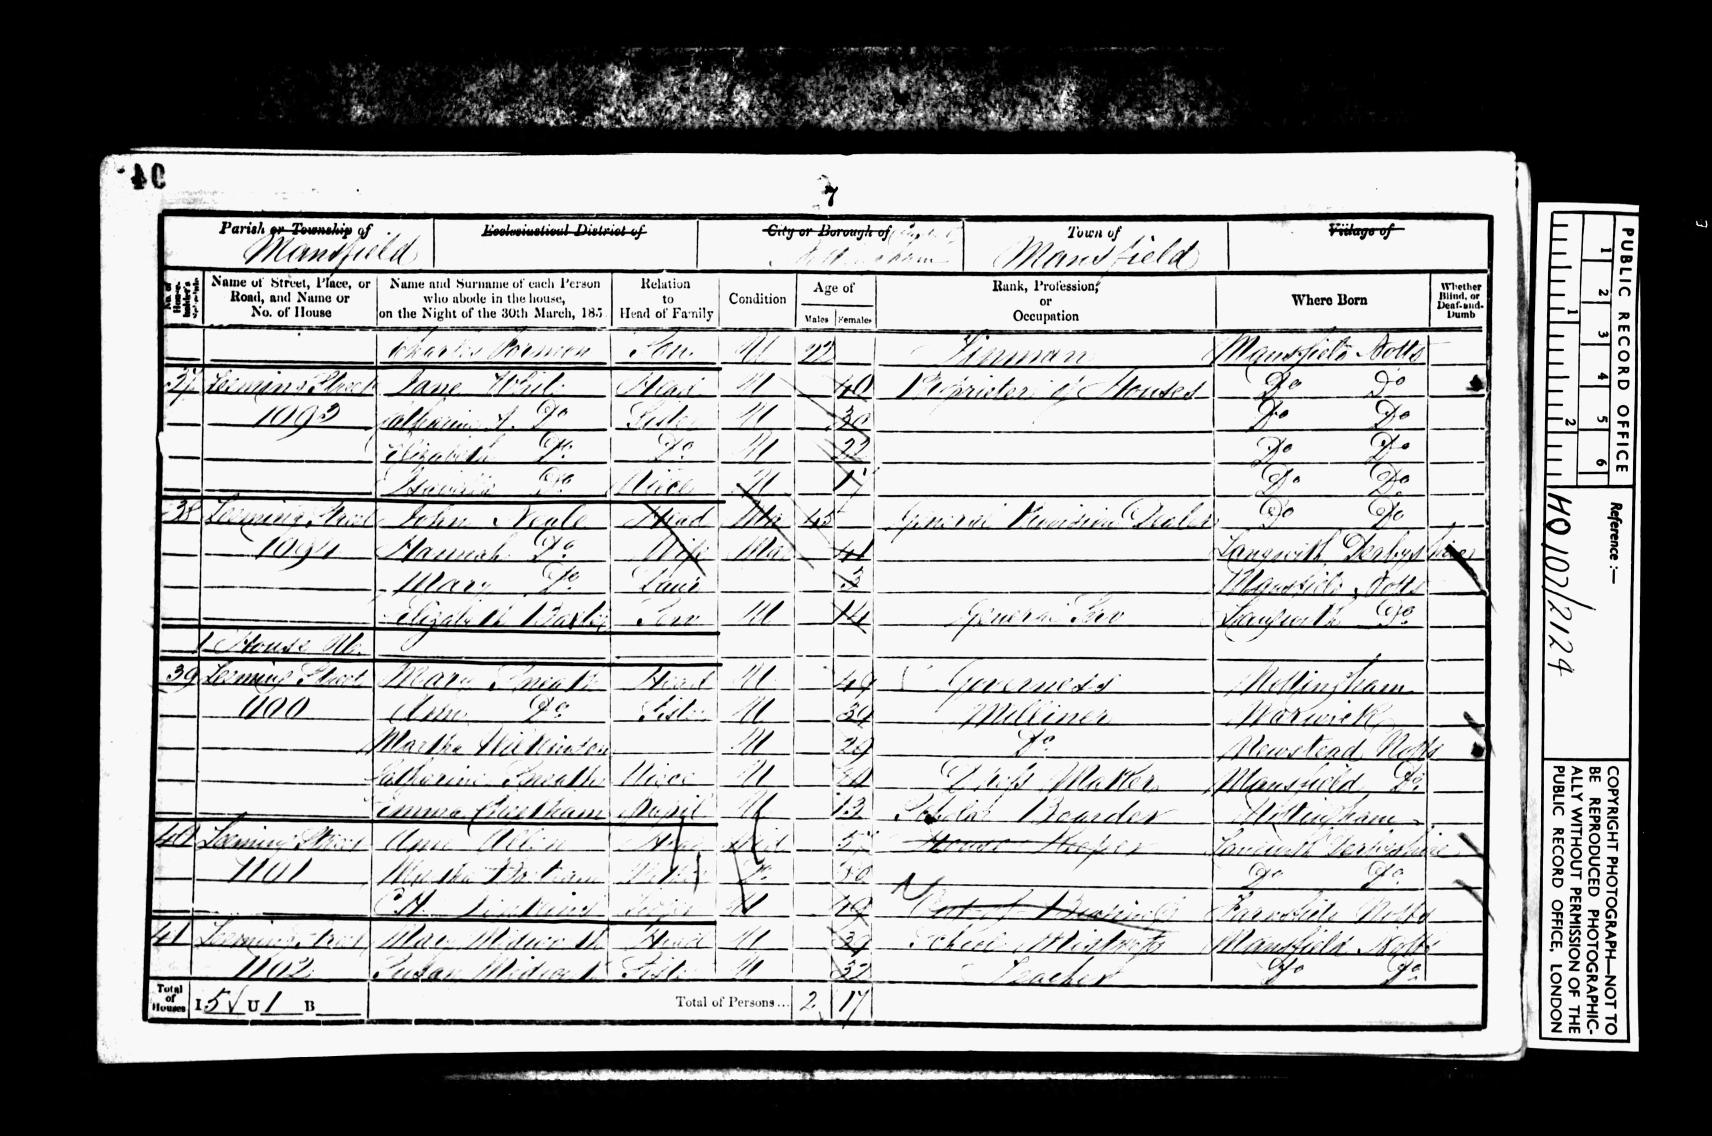 40
7
Parish or Township of
Mansfield
Ecclesiastical District of
City or Borough of
Town of
Mansfield
Village of
No. of House-holder's Schedule
Name of Street, Place, or Road, and Name or No. of House
Name and Surname of each Person who abode in the house, on the Night of the 30th March, 185
Relation to Head of Family
Condition
Age of
Males Females
Rank, Profession, or Occupation
Where Born
Whether Blind, or Deaf-and-Dumb
Charles Son U 22 Tinman Mansfield Notts
37 Leeming Street Jane Head U 40 Proprietor of Houses Do Do
1093 Catherine A. Do Sister U 30 Do Do
Elizabeth Do Do U 22 Do Do
Do Niece U 17 Do Do
38 Leeming Street John Neale Head Mar 45 General Provision Dealer Do Do
1094 Hannah Do Wife Mar 41 Langwith Derbyshire
Mary Do Daur 3 Mansfield Notts
Elizabeth Serv U 14 General Serv Langwith Do
1 House
39 Leeming Street Mary Sneath Head U 49 Governess Nottingham
1100 Ann Do Sister U 39 Milliner Warwick
Martha Wilkinson U 29 Do Newstead Notts
Catherine Sneath Niece U Dress Maker Mansfield Do
Emma Cheetham Pupil U 13 Scholar Boarder Nottingham
40 Leeming Street Ann Allen Head Wid 57 House Keeper Langwith Derbyshire
1101 Martha Do Do Do
U 49 Farnsfield Notts
41 Leeming Street Mary Head U School Mistress Mansfield Notts
1102 Susan Sister U 32 Teacher Do Do
Total of Houses I 5 U 1 B
Total of Persons... 2 17
PUBLIC RECORD OFFICE
1 2 3 4 5 6
1 2
Reference :—
HO/107/2124
COPYRIGHT PHOTOGRAPH—NOT TO
BE REPRODUCED PHOTOGRAPHIC-
ALLY WITHOUT PERMISSION OF THE
PUBLIC RECORD OFFICE, LONDON